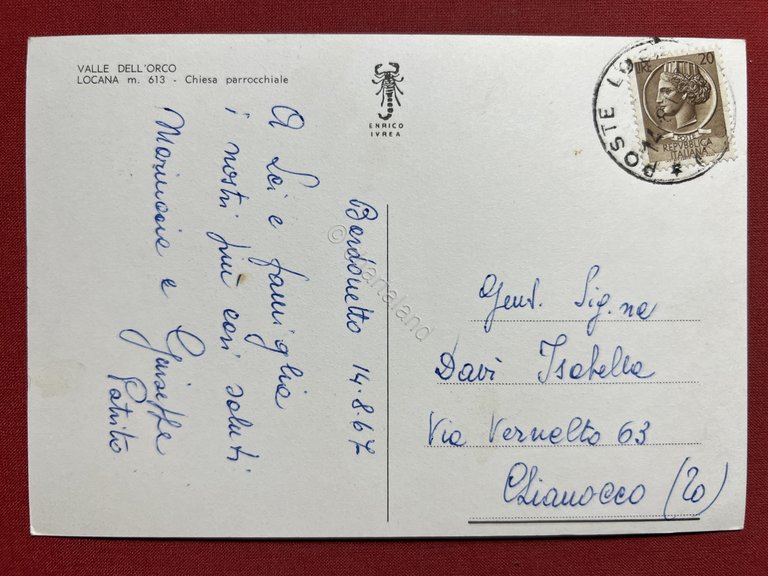 VALLE DELL'ORCO
LOCANA m. 613 - Chiesa parrocchiale
ENRICO
IVREA
Bardonetto 14.8.67
A Lei e famiglia
i nostri più cari saluti
Marinccia e Giuseppe
POSTE
LIRE 20
POSTE
REPUBBLICA
ITALIANA
Gent. Sig.na
Davì Isabella
Via Vernetto 63
Chianocco (To)
© Cartaland